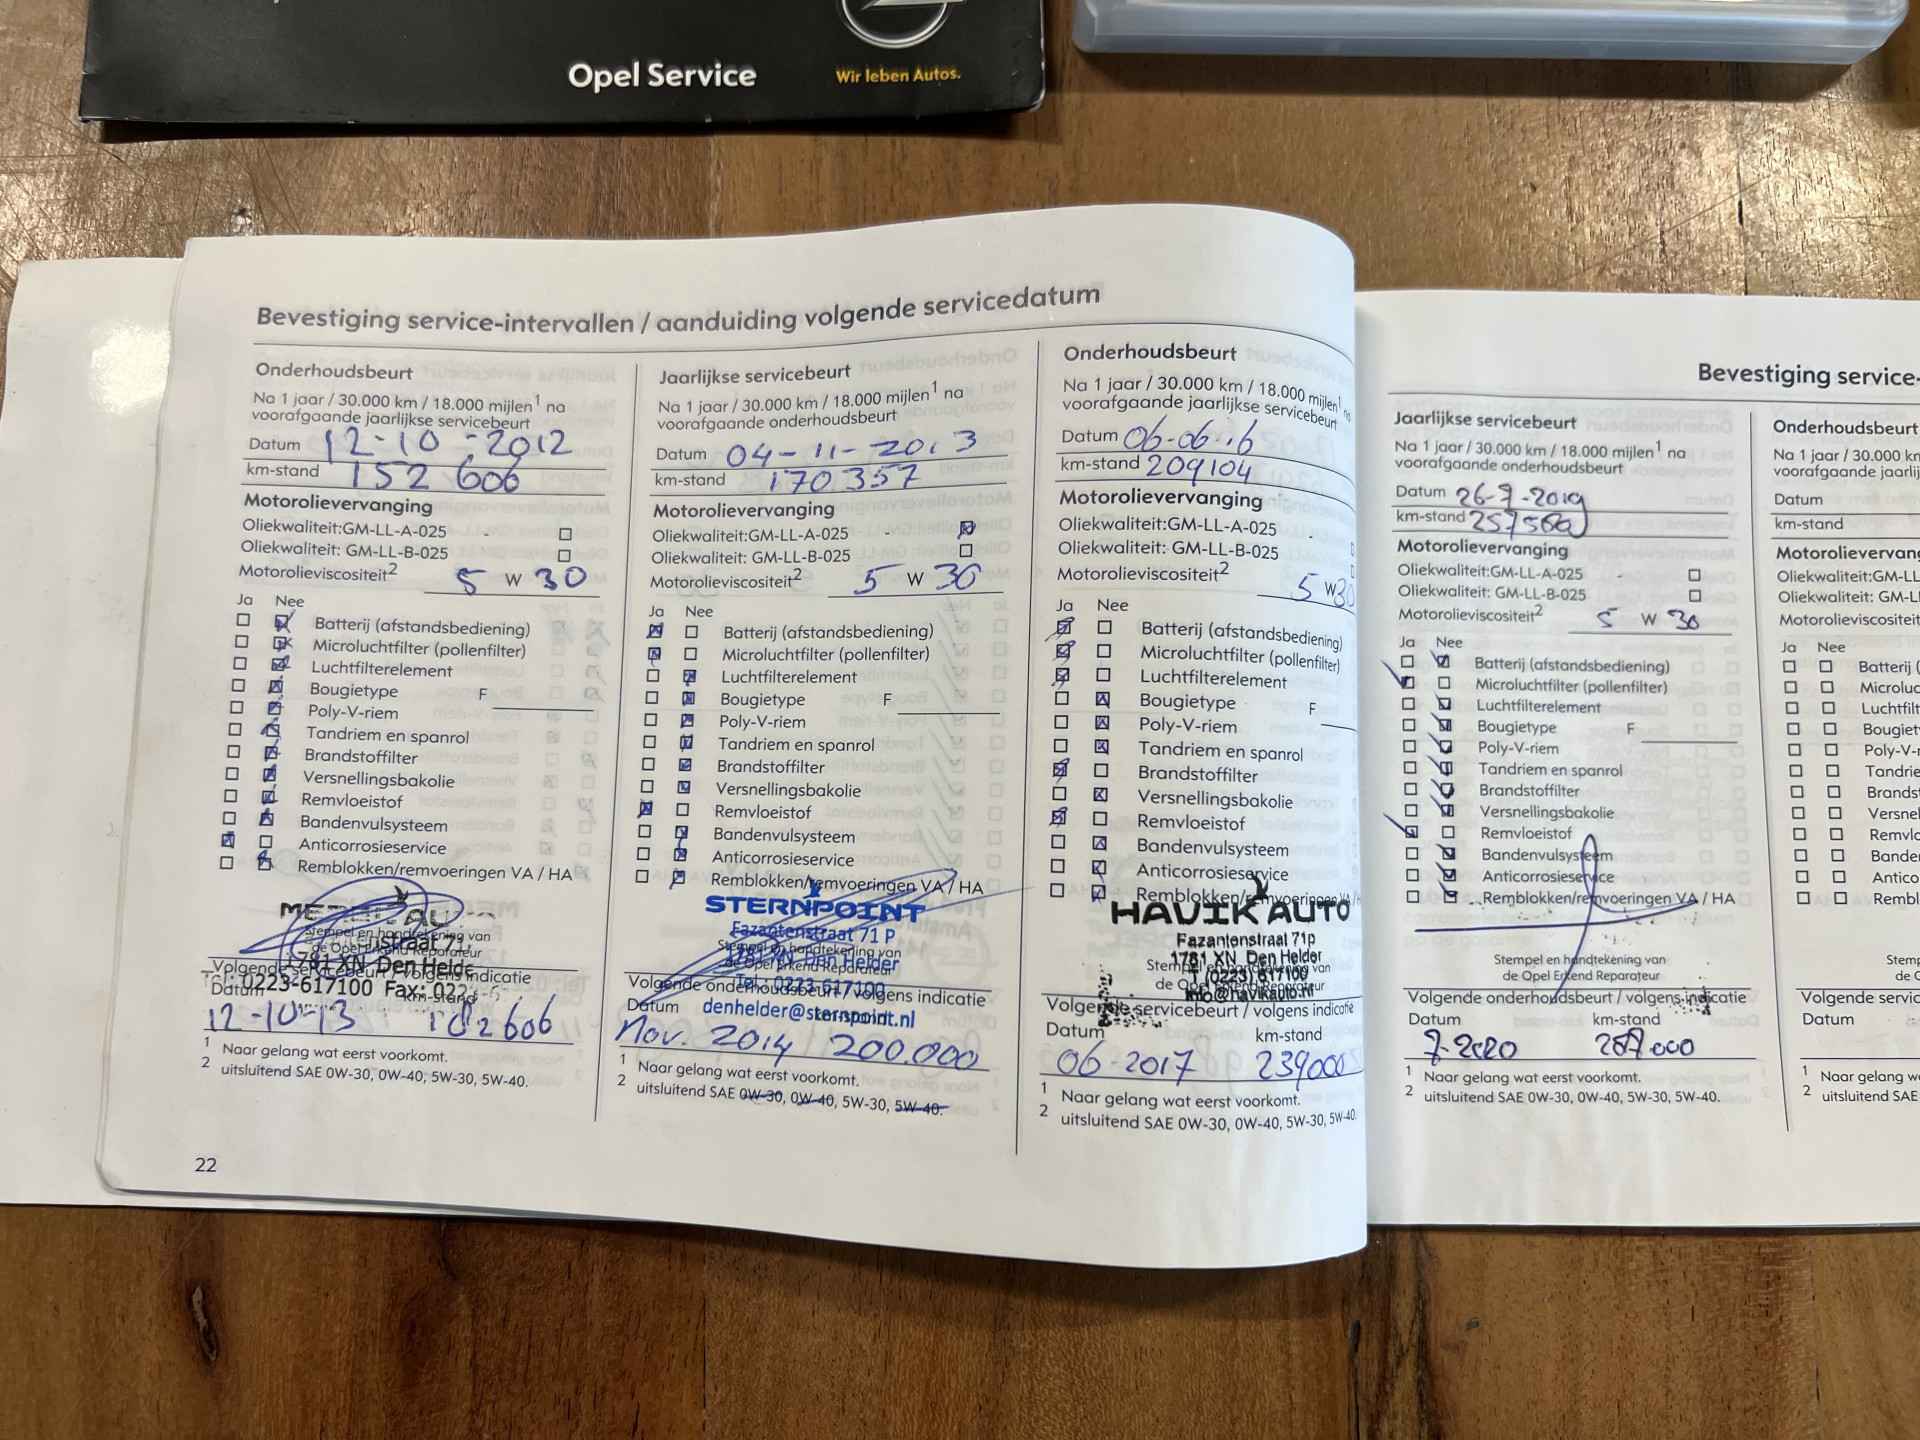 Opel Service
Wir leben Autos.
Bevestiging service-intervallen / aanduiding volgende servicedatum
Onderhoudsbeurt
Na 1 jaar / 30.000 km / 18.000 mijlen1 na
voorafgaande jaarlijkse servicebeurt
Datum 12-10-2012
km-stand 152 606
Motorolievervanging
Oliekwaliteit:GM-LL-A-025
Oliekwaliteit: GM-LL-B-025
Motorolieviscositeit2 5 W 30
Ja Nee
Batterij (afstandsbediening)
Microluchtfilter (pollenfilter)
Luchtfilterelement
Bougietype F
Poly-V-riem
Tandriem en spanrol
Brandstoffilter
Versnellingsbakolie
Remvloeistof
Bandenvulsysteem
Anticorrosieservice
Remblokken/remvoeringen VA / HA
Stempel en handtekening van
de Opel Erkend Reparateur
1781 XN Den Helde
Volgende servicebeurt / volgens indicatie
Tel: 0223-617100 Fax:
Datum km-stand
12-10-13 182 606
1 Naar gelang wat eerst voorkomt.
2 uitsluitend SAE 0W-30, 0W-40, 5W-30, 5W-40.
22
Jaarlijkse servicebeurt
Na 1 jaar / 30.000 km / 18.000 mijlen1 na
voorafgaande onderhoudsbeurt
Datum 04-11-2013
km-stand 170.357
Motorolievervanging
Oliekwaliteit:GM-LL-A-025
Oliekwaliteit: GM-LL-B-025
Motorolieviscositeit2 5 W 30
Ja Nee
Batterij (afstandsbediening)
Microluchtfilter (pollenfilter)
Luchtfilterelement
Bougietype F
Poly-V-riem
Tandriem en spanrol
Brandstoffilter
Versnellingsbakolie
Remvloeistof
Bandenvulsysteem
Anticorrosieservice
Remblokken/remvoeringen VA / HA
STERNPOINT
Fazantenstraat 71 P
Stempel en handtekening van
1781 XN Den Helder
de Opel Erkend Reparateur
Tel.: 0223-617100
Volgende onderhoudsbeurt / volgens indicatie
Datum km-stand
denhelder@sternpoint.nl
Nov. 2014 200.000
1 Naar gelang wat eerst voorkomt.
2 uitsluitend SAE 0W-30, 0W-40, 5W-30, 5W-40.
Onderhoudsbeurt
Na 1 jaar / 30.000 km / 18.000 mijlen1 na
voorafgaande jaarlijkse servicebeurt
Datum 06-06-16
km-stand 209104
Motorolievervanging
Oliekwaliteit:GM-LL-A-025
Oliekwaliteit: GM-LL-B-025
Motorolieviscositeit2 5 W 30
Ja Nee
Batterij (afstandsbediening)
Microluchtfilter (pollenfilter)
Luchtfilterelement
Bougietype F
Poly-V-riem
Tandriem en spanrol
Brandstoffilter
Versnellingsbakolie
Remvloeistof
Bandenvulsysteem
Anticorrosieservice
Remblokken/remvoeringen VA / HA
HAVIK AUTO
Fazantenstraat 71p
1781 XN Den Helder
Stempel en handtekening van
T (0223) 617100
de Opel Erkend Reparateur
info@havikauto.nl
Volgende servicebeurt / volgens indicatie
Datum km-stand
06-2017 239000
1 Naar gelang wat eerst voorkomt.
2 uitsluitend SAE 0W-30, 0W-40, 5W-30, 5W-40
Bevestiging service-
Jaarlijkse servicebeurt
Na 1 jaar / 30.000 km / 18.000 mijlen1 na
voorafgaande onderhoudsbeurt
Datum 26-7-2019
km-stand
Motorolievervanging
Oliekwaliteit:GM-LL-A-025
Oliekwaliteit: GM-LL-B-025
Motorolieviscositeit2 5 W 30
Ja Nee
Batterij (afstandsbediening)
Microluchtfilter (pollenfilter)
Luchtfilterelement
Bougietype F
Poly-V-riem
Tandriem en spanrol
Brandstoffilter
Versnellingsbakolie
Remvloeistof
Bandenvulsysteem
Anticorrosieservice
Remblokken/remvoeringen VA / HA
Stempel en handtekening van
de Opel Erkend Reparateur
Volgende onderhoudsbeurt / volgens indicatie
Datum km-stand
7-2020 287000
1 Naar gelang wat eerst voorkomt.
2 uitsluitend SAE 0W-30, 0W-40, 5W-30, 5W-40.
Onderhoudsbeurt
Na 1 jaar / 30.000 k
voorafgaande jaarlij
Datum
km-stand
Motorolievervang
Oliekwaliteit:GM-LL
Oliekwaliteit: GM-L
Motorolieviscositeit
Ja Nee
Batterij (
Microluc
Luchtfilt
Bougiet
Poly-V-
Tandrie
Brandst
Versnel
Remvlo
Banden
Antico
Rembl
Stemp
de O
Volgende servic
Datum
1 Naar gelang w
2 uitsluitend SAE